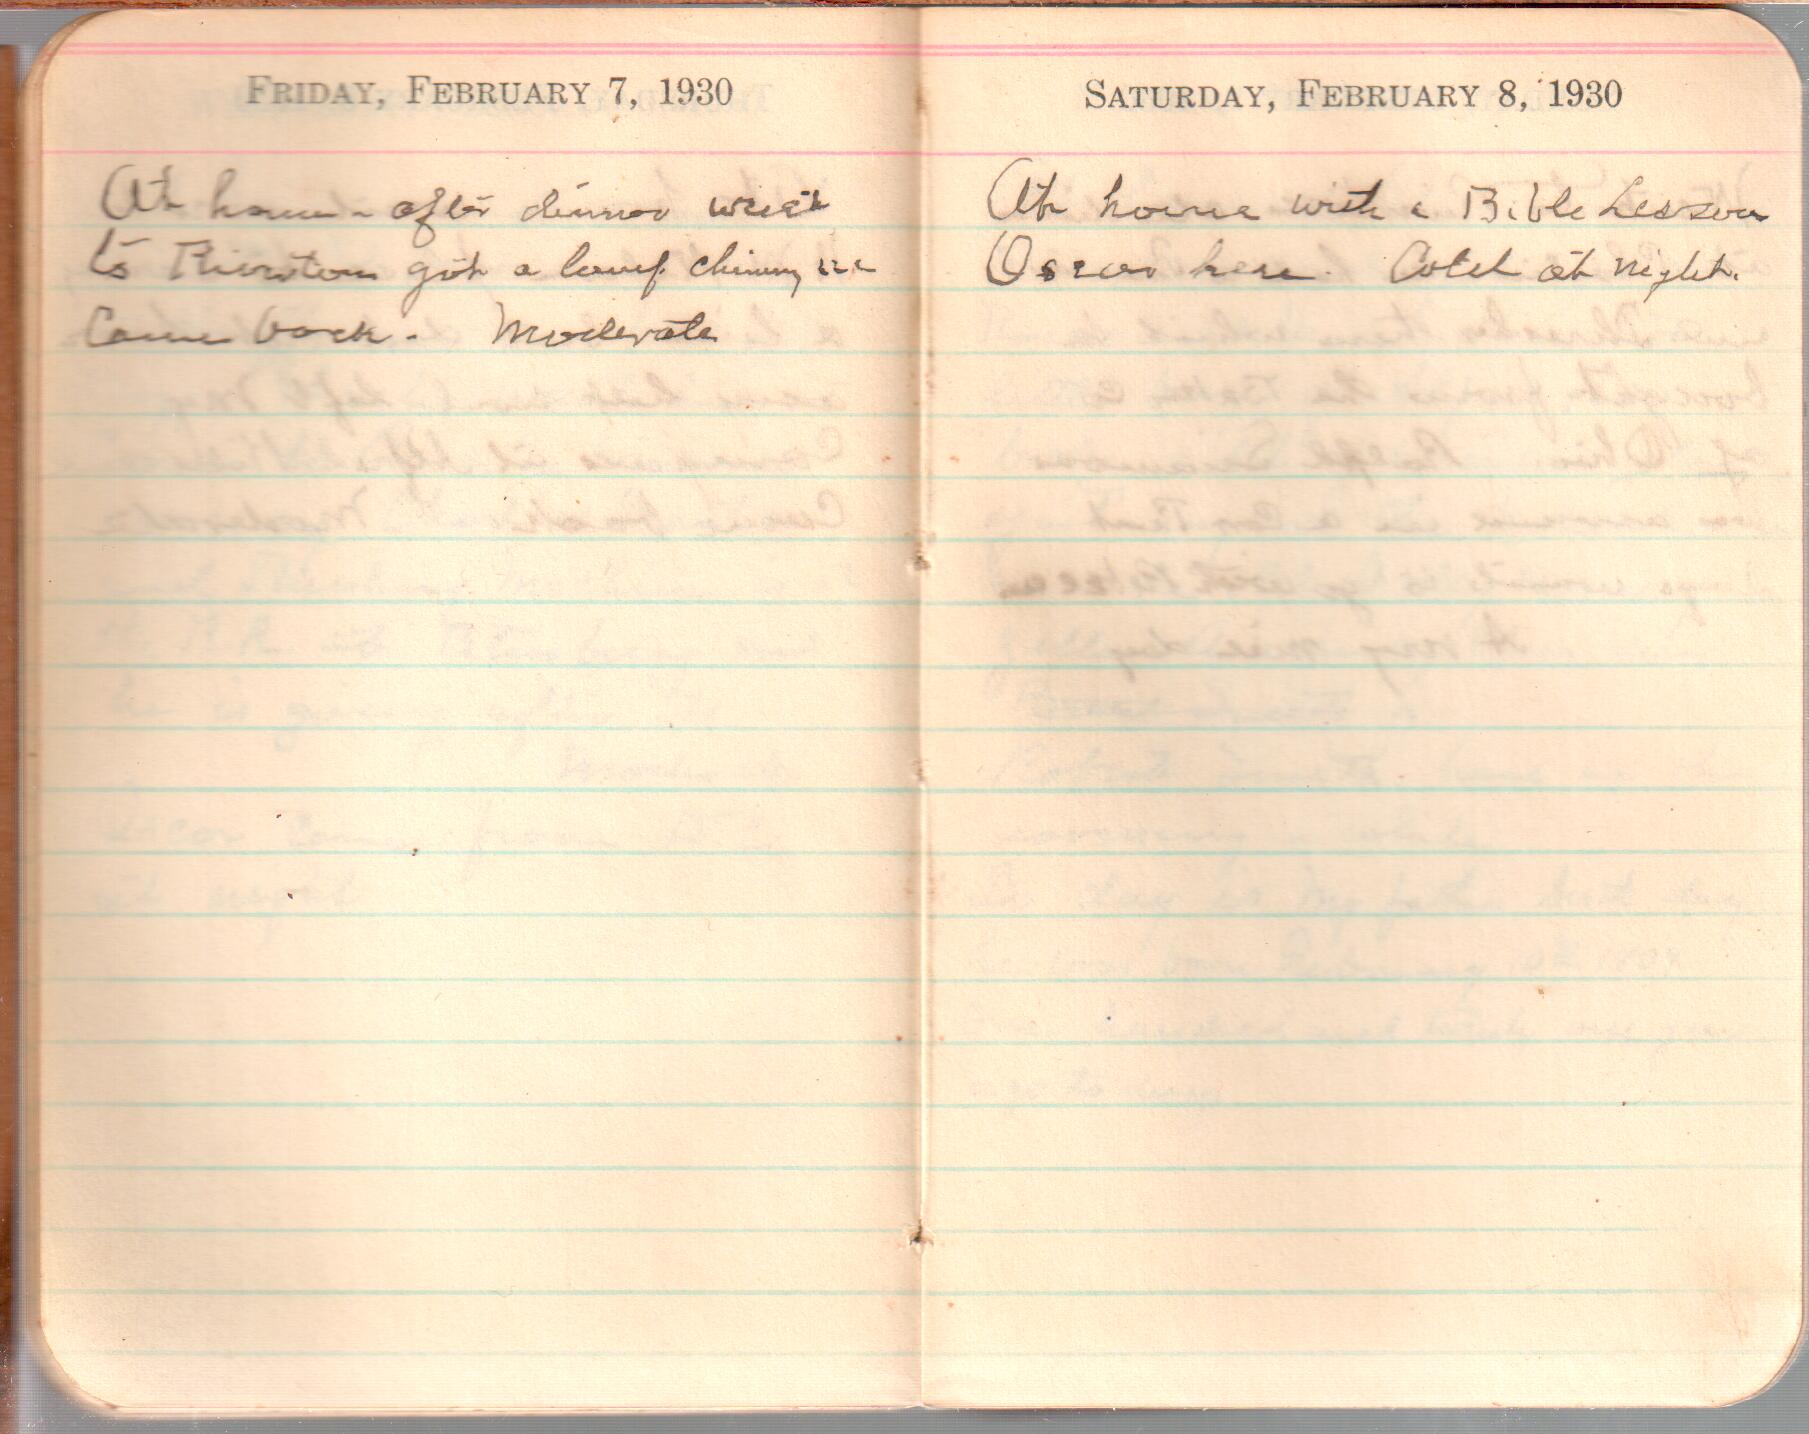 FRIDAY, FEBRUARY 7, 1930
At home - after dinner went
to Riverton got a lamp chimney
Came back. Moderate
SATURDAY, FEBRUARY 8, 1930
At home with a Bible Lesson
Oscar here. Cold at night.